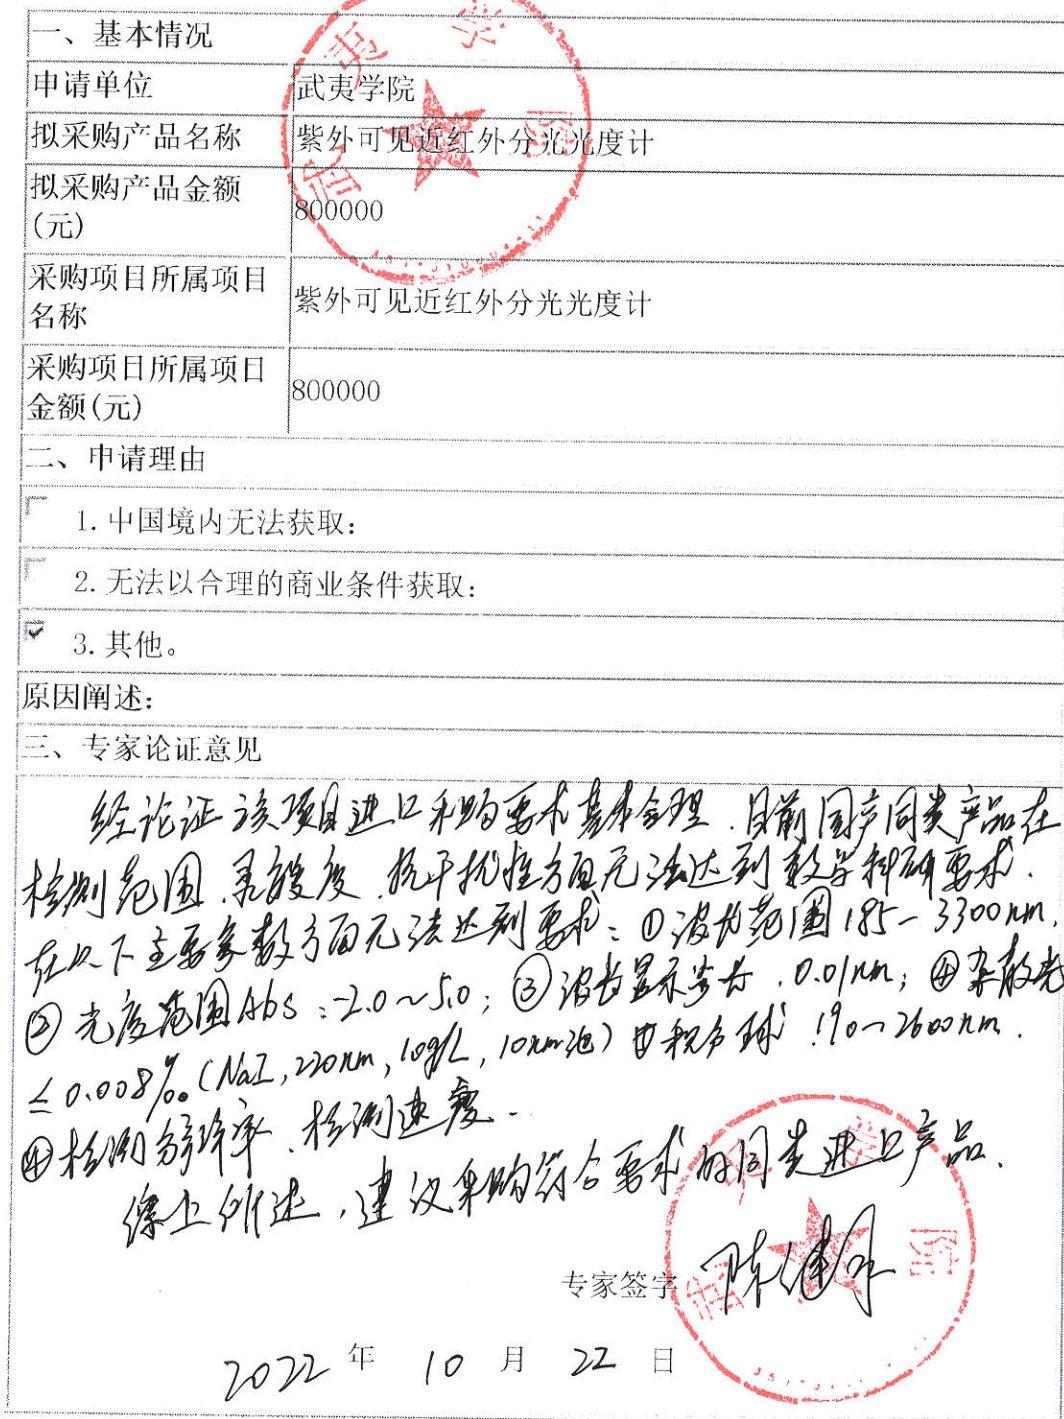 一、基本情况
申请单位
武夷学院
拟采购产品名称
紫外可见近红外分光光度计
拟采购产品金额
(元)
800000
采购项目所属项目
名称
紫外可见近红外分光光度计
采购项目所属项目
金额(元)
800000
二、申请理由
1.中国境内无法获取:
2.无法以合理的商业条件获取:
3.其他。
原因阐述:
三、专家论证意见
经论证该项目进口采购要求基本合理.目前国产同类产品在
检测范围、灵敏度、抗干扰性方面无法达到教学科研要求.
在以下主要参数方面无法达到要求:①波长范围185-3300nm,
②光度范围Abs:-2.0~5.0;③波长显示 0.01nm;④杂散光
≤0.008%(NaI,220nm,10g/L,10mm池)积分球 190~2600nm.
④检测分辨率、检测速度.
综上所述,建议采购符合要求的同类进口产品.
专家签字
2022 年 10 月 22 日
武夷学院
武 学院